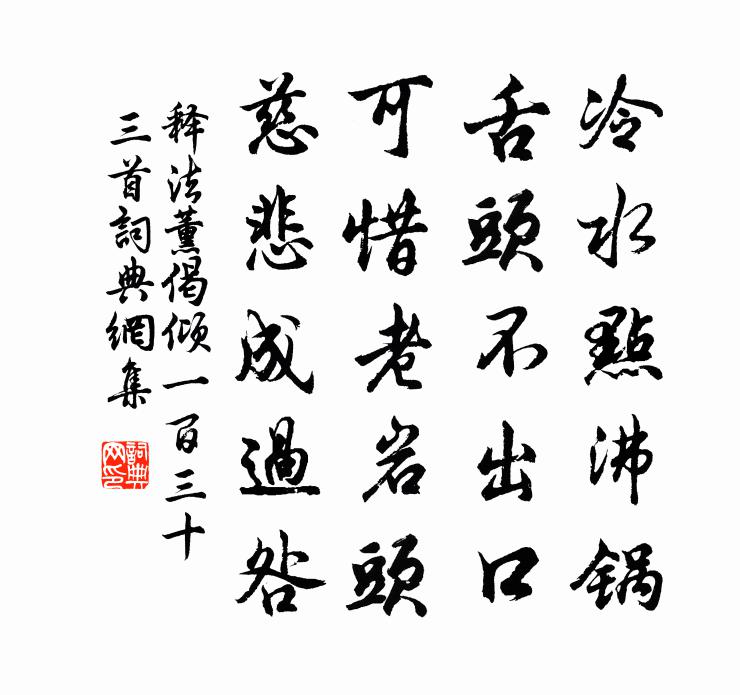 冷水點沸锅
舌頭不出口
可惜老岩頭
慈悲成過咎
释法薰偈倾一百三十
三首詞典網集
詞典
网印